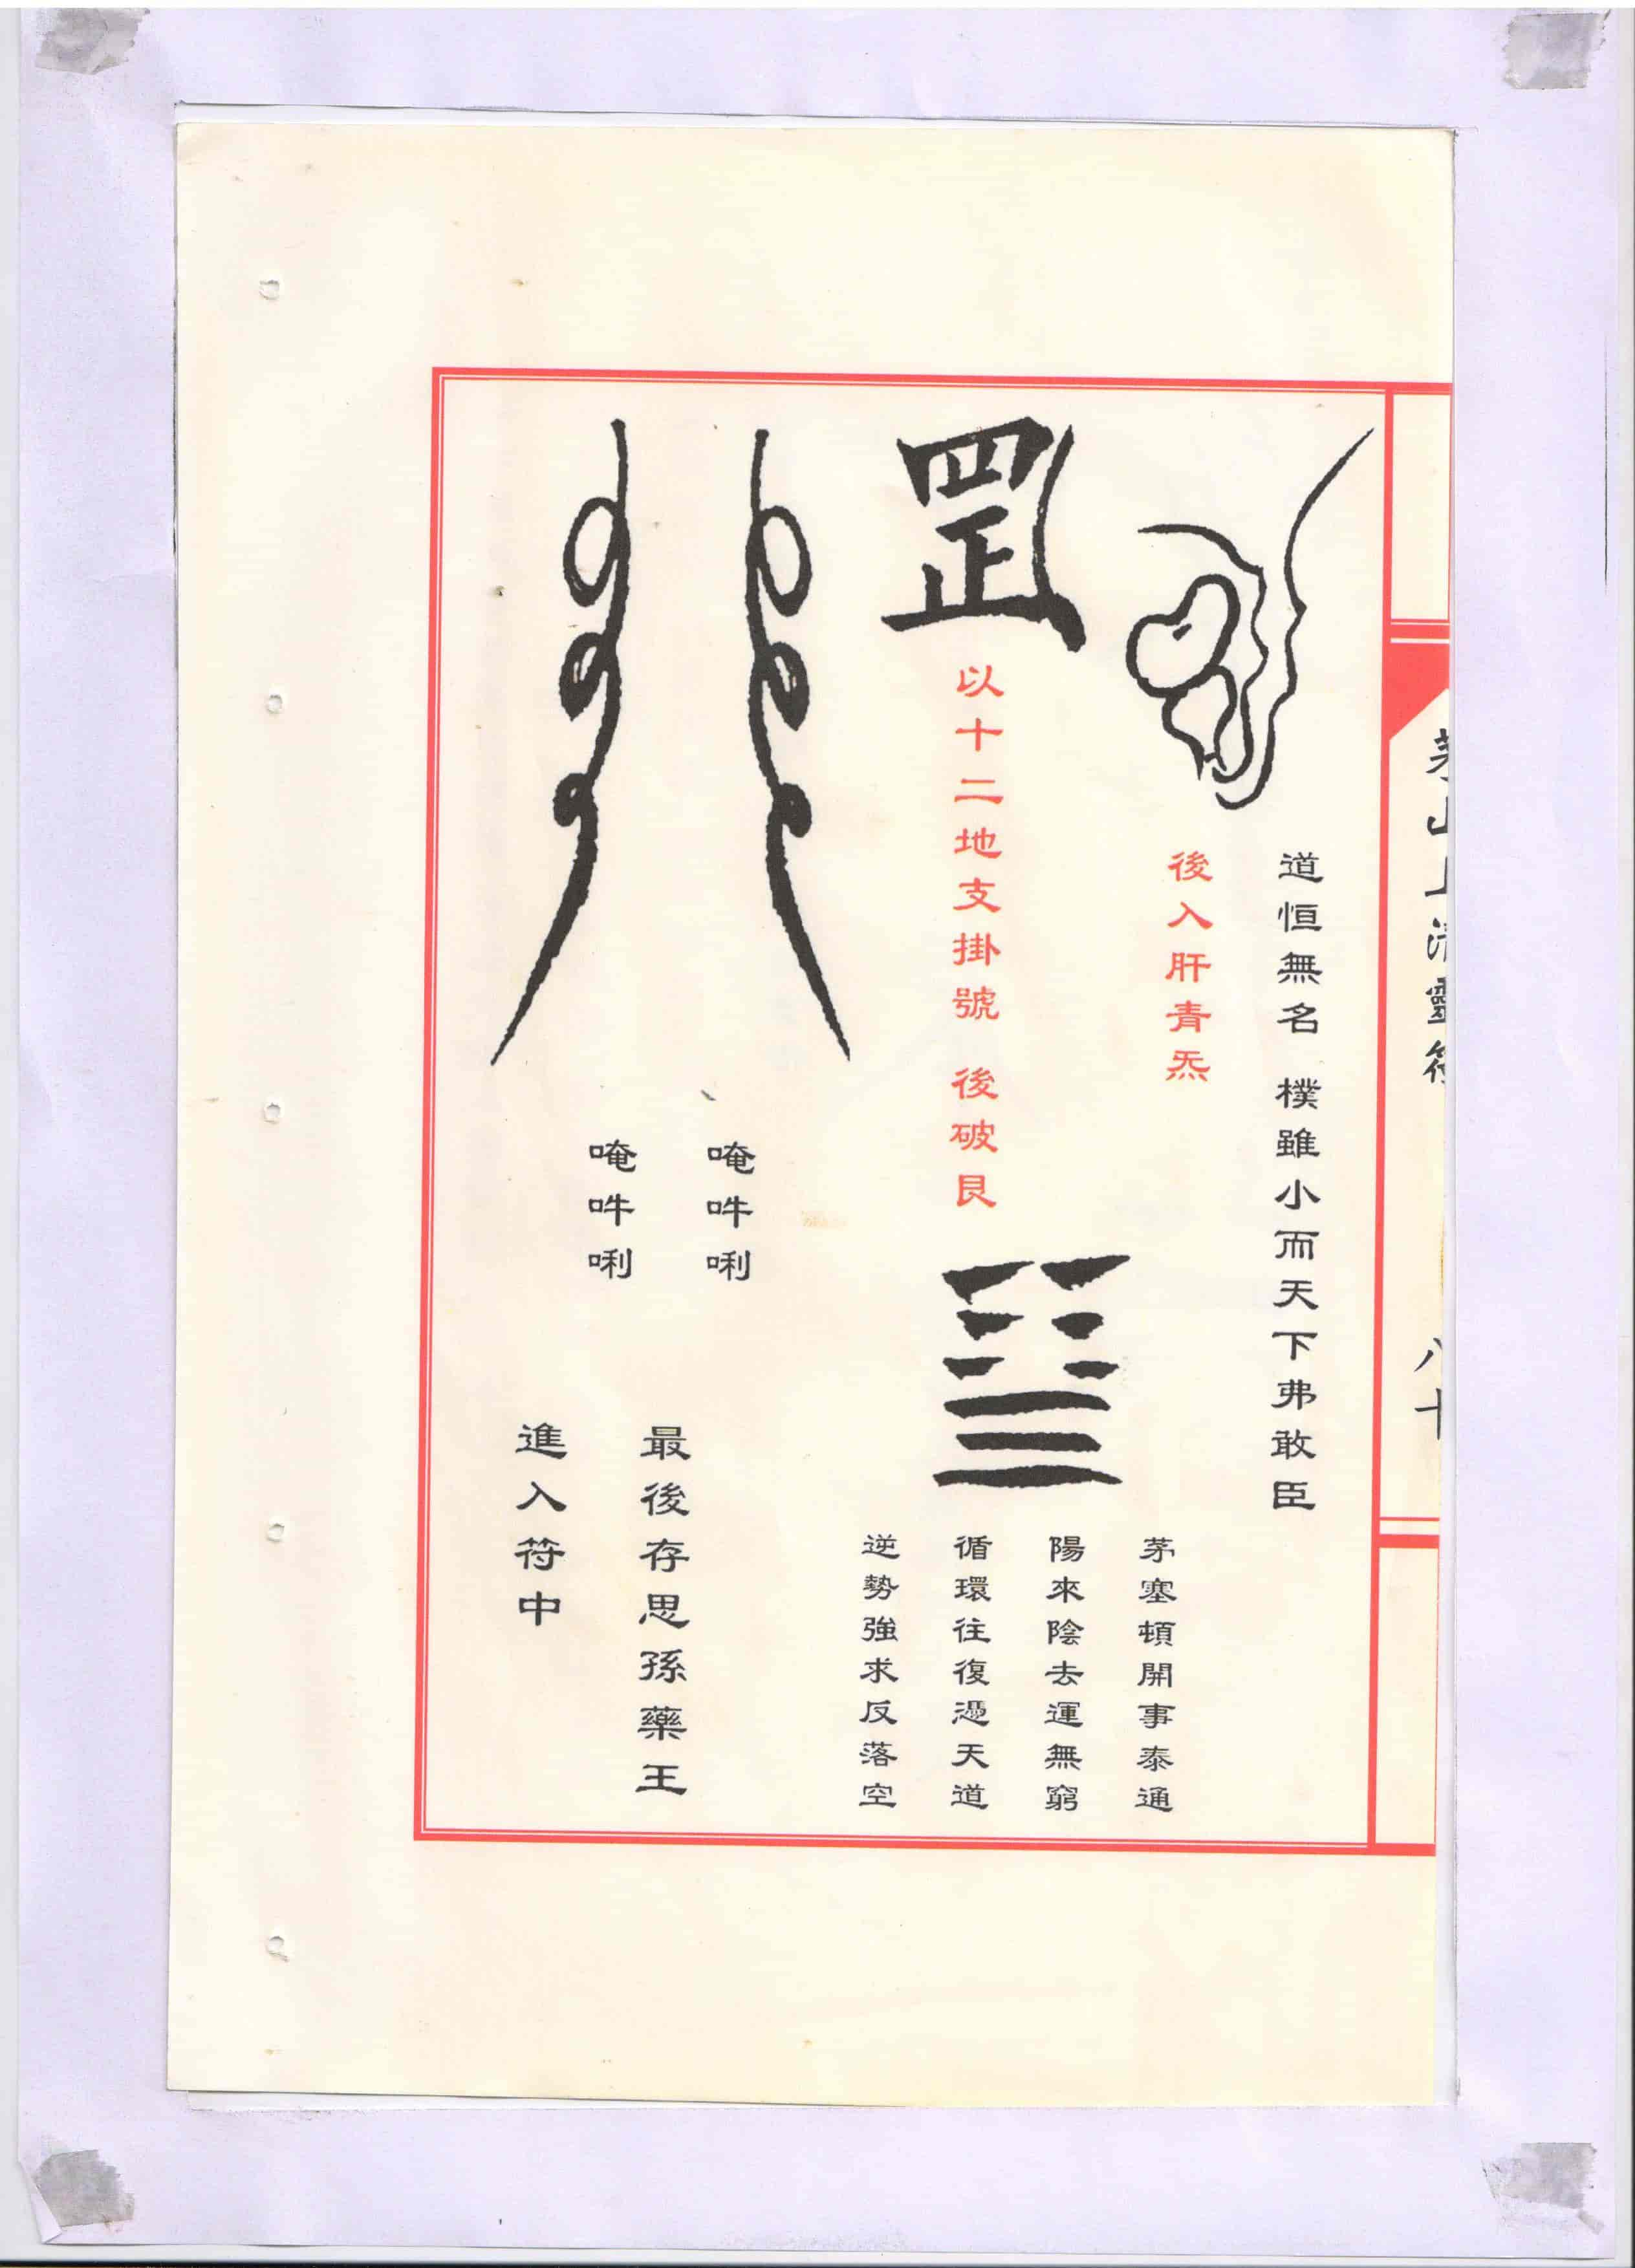 茅山上清靈符
八十
道恒無名 樸雖小而天下弗敢臣
後入肝青炁
罡
以十二地支掛號 後破艮
茅塞頓開事泰通
陽來陰去運無窮
循環往復憑天道
逆勢強求反落空
唵吽唎
唵吽唎
最後存思孫藥王
進入符中